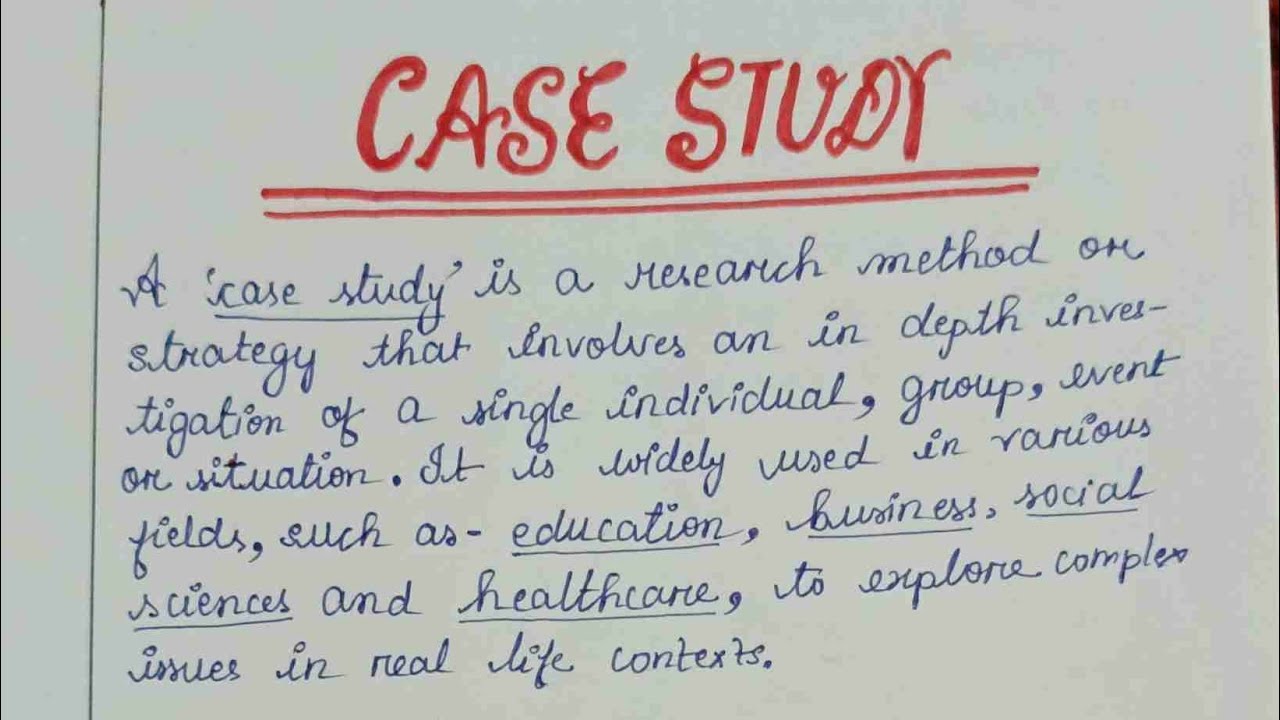 CASE STUDY
A 'case study' is a research method or
strategy that involves an in depth inves-
tigation of a single individual, group, event
or situation. It is widely used in various
fields, such as- education, business, social
sciences and healthcare, to explore complex
issues in real life contexts.